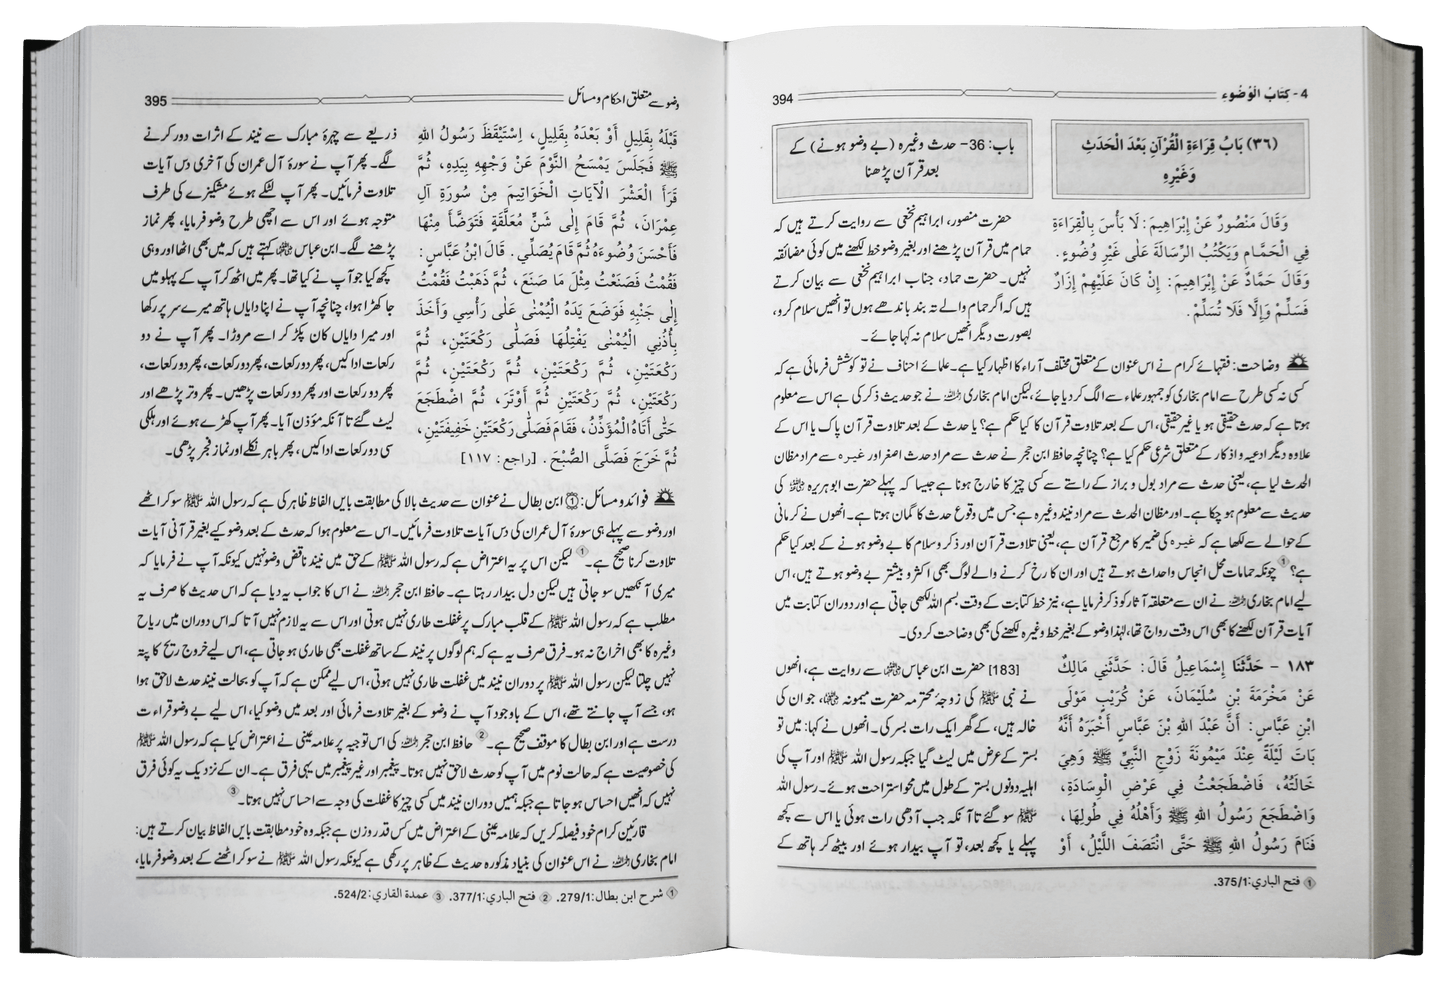 4- كِتَابُ الْوُضُوءِ
394
(٣٦) بَابُ قِرَاءَةِ الْقُرْآنِ بَعْدَ الْحَدَثِ
وَغَيْرِهِ
باب: 36- حدث وغیرہ (بے وضو ہونے) کے
بعد قرآن پڑھنا
وَقَالَ مَنْصُورٌ عَنْ إِبْرَاهِيمَ: لَا بَأْسَ بِالْقِرَاءَةِ
فِي الْحَمَّامِ وَيَكْتُبُ الرِّسَالَةَ عَلٰى غَيْرِ وُضُوءٍ.
وَقَالَ حَمَّادٌ عَنْ إِبْرَاهِيمَ: إِنْ كَانَ عَلَيْهِمْ إِزَارٌ
فَسَلِّمْ وَإِلَّا فَلَا تُسَلِّمْ.
حضرت منصور، ابراہیم نخعی سے روایت کرتے ہیں کہ
حمام میں قرآن پڑھنے اور بغیر وضو خط لکھنے میں کوئی مضائقہ
نہیں۔ حضرت حماد، جناب ابراہیم نخعی سے بیان کرتے
ہیں کہ اگر حمام والے تہ بند باندھے ہوں تو انھیں سلام کرو،
بصورت دیگر انھیں سلام نہ کہا جائے۔
وضاحت: فقہائے کرام نے اس عنوان کے متعلق مختلف آراء کا اظہار کیا ہے۔ علمائے احناف نے تو کوشش فرمائی ہے کہ
کسی نہ کسی طرح سے امام بخاری کو جمہور علماء سے الگ کر دیا جائے، لیکن امام بخاری رحمہ اللہ نے جو حدیث ذکر کی ہے اس سے معلوم
ہوتا ہے کہ حدث حقیقی ہو یا غیر حقیقی، اس کے بعد تلاوت قرآن کا کیا حکم ہے؟ یا حدث کے بعد تلاوت قرآن پاک یا اس کے
علاوہ دیگر ادعیہ و اذکار کے متعلق شرعی حکم کیا ہے؟ چنانچہ حافظ ابن حجر نے حدث سے مراد حدث اصغر اور غیرہ سے مراد مظان
الحدث لیا ہے، یعنی حدث سے مراد بول و براز کے راستے سے کسی چیز کا خارج ہونا ہے جیسا کہ پہلے حضرت ابو ہریرہ رضی اللہ عنہ کی
حدیث سے معلوم ہو چکا ہے۔ اور مظان الحدث سے مراد نیند وغیرہ ہے جس میں وقوع حدث کا گمان ہوتا ہے۔ انھوں نے کرمانی
کے حوالے سے لکھا ہے کہ غیرہ کی ضمیر کا مرجع قرآن ہے، یعنی تلاوت قرآن اور ذکر و سلام کا بے وضو ہونے کے بعد کیا حکم
ہے؟ ① چونکہ حمامات محل انجاس و احداث ہوتے ہیں اور ان کا رخ کرنے والے لوگ بھی اکثر و بیشتر بے وضو ہوتے ہیں، اس
لیے امام بخاری رحمہ اللہ نے ان سے متعلقہ آثار کو ذکر فرمایا ہے، نیز خط کتابت کے وقت بسم اللہ لکھی جاتی ہے اور دوران کتابت میں
آیات قرآن لکھنے کا بھی اس وقت رواج تھا، لہٰذا وضو کے بغیر خط وغیرہ لکھنے کی بھی وضاحت کر دی۔
١٨٣ - حَدَّثَنَا إِسْمَاعِيلُ قَالَ: حَدَّثَنِي مَالِكٌ
عَنْ مَخْرَمَةَ بْنِ سُلَيْمَانَ، عَنْ كُرَيْبٍ مَوْلَى
ابْنِ عَبَّاسٍ: أَنَّ عَبْدَ اللهِ بْنَ عَبَّاسٍ أَخْبَرَهُ أَنَّهُ
بَاتَ لَيْلَةً عِنْدَ مَيْمُونَةَ زَوْجِ النَّبِيِّ ﷺ وَهِيَ
خَالَتُهُ، فَاضْطَجَعْتُ فِي عَرْضِ الْوِسَادَةِ،
وَاضْطَجَعَ رَسُولُ اللهِ ﷺ وَأَهْلُهُ فِي طُولِهَا،
فَنَامَ رَسُولُ اللهِ ﷺ حَتّٰى انْتَصَفَ اللَّيْلُ، أَوْ
[183] حضرت ابن عباس رضی اللہ عنہما سے روایت ہے، انھوں
نے نبی ﷺ کی زوجۂ محترمہ حضرت میمونہ رضی اللہ عنہا، جو ان کی
خالہ ہیں، کے گھر ایک رات بسر کی۔ انھوں نے کہا: میں تو
بستر کے عرض میں لیٹ گیا جبکہ رسول اللہ ﷺ اور آپ کی
اہلیہ دونوں بستر کے طول میں محو استراحت ہوئے۔ رسول اللہ
ﷺ سو گئے تا آنکہ جب آدھی رات ہوئی یا اس سے کچھ
پہلے یا کچھ بعد، تو آپ بیدار ہوئے اور بیٹھ کر ہاتھ کے
① فتح الباري: 375/1.
وضو سے متعلق احکام و مسائل
395
قَبْلَهُ بِقَلِيلٍ أَوْ بَعْدَهُ بِقَلِيلٍ، اِسْتَيْقَظَ رَسُولُ اللهِ
ﷺ فَجَلَسَ يَمْسَحُ النَّوْمَ عَنْ وَجْهِهِ بِيَدِهِ، ثُمَّ
قَرَأَ الْعَشْرَ الْآيَاتِ الْخَوَاتِيمَ مِنْ سُورَةِ آلِ
عِمْرَانَ، ثُمَّ قَامَ إِلٰى شَنٍّ مُعَلَّقَةٍ فَتَوَضَّأَ مِنْهَا
فَأَحْسَنَ وُضُوءَهُ ثُمَّ قَامَ يُصَلِّي. قَالَ ابْنُ عَبَّاسٍ:
فَقُمْتُ فَصَنَعْتُ مِثْلَ مَا صَنَعَ، ثُمَّ ذَهَبْتُ فَقُمْتُ
إِلٰى جَنْبِهِ فَوَضَعَ يَدَهُ الْيُمْنٰى عَلٰى رَأْسِي وَأَخَذَ
بِأُذُنِي الْيُمْنٰى يَفْتِلُهَا فَصَلّٰى رَكْعَتَيْنِ، ثُمَّ
رَكْعَتَيْنِ، ثُمَّ رَكْعَتَيْنِ، ثُمَّ رَكْعَتَيْنِ، ثُمَّ
رَكْعَتَيْنِ، ثُمَّ رَكْعَتَيْنِ ثُمَّ أَوْتَرَ، ثُمَّ اضْطَجَعَ
حَتّٰى أَتَاهُ الْمُؤَذِّنُ، فَقَامَ فَصَلّٰى رَكْعَتَيْنِ خَفِيفَتَيْنِ،
ثُمَّ خَرَجَ فَصَلَّى الصُّبْحَ. [راجع: ١١٧]
ذریعے سے چہرۂ مبارک سے نیند کے اثرات دور کرنے
لگے۔ پھر آپ نے سورۂ آل عمران کی آخری دس آیات
تلاوت فرمائیں۔ پھر آپ لٹکے ہوئے مشکیزے کی طرف
متوجہ ہوئے اور اس سے اچھی طرح وضو فرمایا، پھر نماز
پڑھنے لگے۔ ابن عباس رضی اللہ عنہما کہتے ہیں کہ میں بھی اٹھا اور وہی
کچھ کیا جو آپ نے کیا تھا۔ پھر میں اٹھ کر آپ کے پہلو میں
جا کھڑا ہوا، چنانچہ آپ نے اپنا دایاں ہاتھ میرے سر پر رکھا
اور میرا دایاں کان پکڑ کر اسے مروڑا۔ پھر آپ نے دو
رکعات ادا کیں، پھر دو رکعات، پھر دو رکعات، پھر دو رکعات،
پھر دو رکعات اور پھر دو رکعات پڑھیں۔ پھر وتر پڑھے اور
لیٹ گئے تا آنکہ مؤذن آیا۔ پھر آپ کھڑے ہوئے اور ہلکی
سی دو رکعات ادا کیں، پھر باہر نکلے اور نماز فجر پڑھی۔
فوائد و مسائل: ① ابن بطال نے عنوان سے حدیث بالا کی مطابقت بایں الفاظ ظاہر کی ہے کہ رسول اللہ ﷺ سو کر اٹھے
اور وضو سے پہلے ہی سورۂ آل عمران کی دس آیات تلاوت فرمائیں۔ اس سے معلوم ہوا کہ حدث کے بعد وضو کیے بغیر قرآنی آیات
تلاوت کرنا صحیح ہے۔ ① لیکن اس پر یہ اعتراض ہے کہ رسول اللہ ﷺ کے حق میں نیند ناقض وضو نہیں کیونکہ آپ نے فرمایا کہ
میری آنکھیں سو جاتی ہیں لیکن دل بیدار رہتا ہے۔ حافظ ابن حجر رحمہ اللہ نے اس کا جواب یہ دیا ہے کہ اس حدیث کا صرف یہ
مطلب ہے کہ رسول اللہ ﷺ کے قلب مبارک پر غفلت طاری نہیں ہوتی اور اس سے یہ لازم نہیں آتا کہ اس دوران میں ریاح
وغیرہ کا بھی اخراج نہ ہو۔ فرق صرف یہ ہے کہ ہم لوگوں پر نیند کے ساتھ غفلت بھی طاری ہو جاتی ہے، اس لیے خروج ریح کا پتہ
نہیں چلتا لیکن رسول اللہ ﷺ پر دوران نیند میں غفلت طاری نہیں ہوتی، اس لیے ممکن ہے کہ آپ کو بحالت نیند حدث لاحق ہوا
ہو، جسے آپ جانتے تھے، اس کے باوجود آپ نے وضو کے بغیر تلاوت فرمائی اور بعد میں وضو کیا، اس لیے بے وضو قراءت
درست ہے اور ابن بطال کا موقف صحیح ہے۔ ② حافظ ابن حجر رحمہ اللہ کی اس توجیہ پر علامہ عینی نے اعتراض کیا ہے کہ رسول اللہ ﷺ
کی خصوصیت ہے کہ حالت نوم میں آپ کو حدث لاحق نہیں ہوتا۔ پیغمبر اور غیر پیغمبر میں یہی فرق ہے۔ ان کے نزدیک یہ کوئی فرق
نہیں کہ انھیں احساس ہو جاتا ہے جبکہ ہمیں دوران نیند میں کسی چیز کا غفلت کی وجہ سے احساس نہیں ہوتا۔ ③
قارئین کرام خود فیصلہ کریں کہ علامہ عینی کے اعتراض میں کس قدر وزن ہے جبکہ وہ خود مطابقت بایں الفاظ بیان کرتے ہیں:
امام بخاری رحمہ اللہ نے اس عنوان کی بنیاد مذکورہ حدیث کے ظاہر پر رکھی ہے کیونکہ رسول اللہ ﷺ نے سو کر اٹھنے کے بعد وضو فرمایا،
① شرح ابن بطال: 279/1. ② فتح الباري: 377/1. ③ عمدة القاري: 524/2.